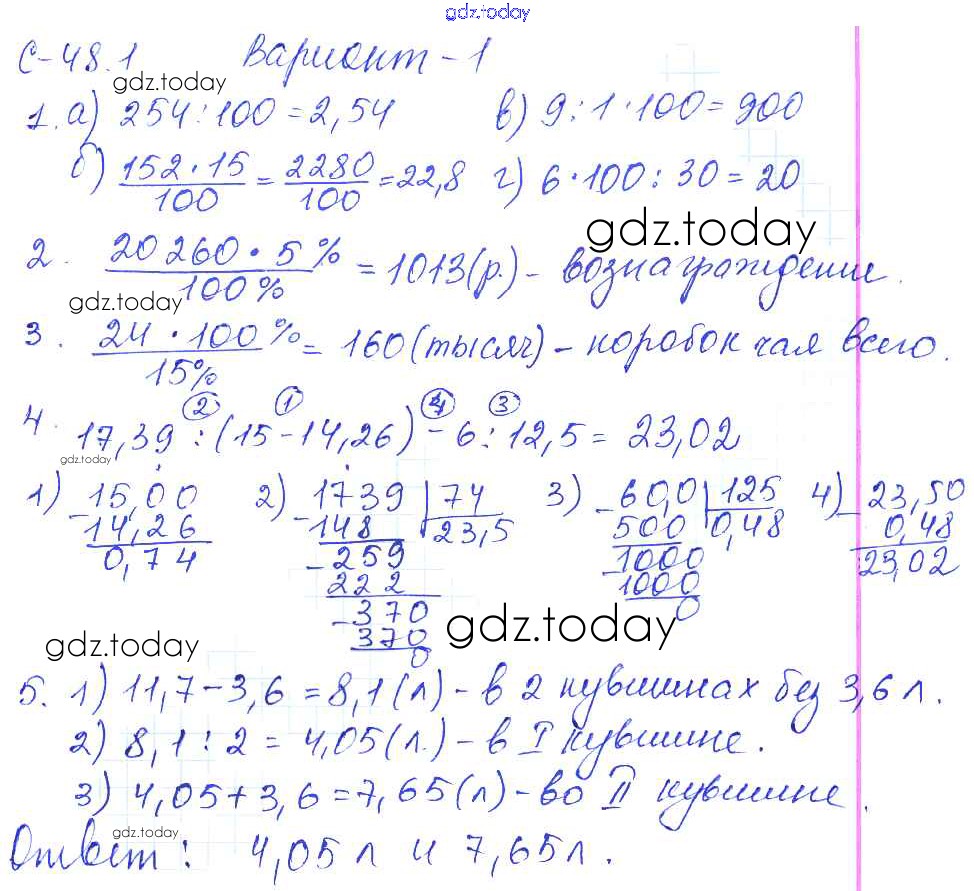 gdz.today
С-48.1 Вариант-1
gdz.today
1. а) 254:100=2,54 в) 9:1·100=900
б) 152·15/100 = 2280/100 = 22,8 г) 6·100:30=20
gdz.today
2. 20260·5%/100% = 1013(р.) - вознаграждение.
gdz.today
3. 24·100%/15% = 160(тысяч) - коробок чая всего.
2 1 4 3
4. 17,39:(15-14,26)-6:12,5=23,02
gdz.today
1) 15,00 2) 1739 74 3) 60,0 125 4) 23,50
- 14,26 - 148 23,5 - 500 0,48 - 0,48
0,74 - 259 - 1000 23,02
222 1000
- 370 0
370 gdz.today
0
gdz.today
5. 1) 11,7-3,6=8,1(л)-в 2 кувшинах без 3,6л.
2) 8,1:2=4,05(л.)-в I кувшине.
3) 4,05+3,6=7,65(л)-во II кувшине.
gdz.today
Ответ: 4,05л и 7,65л.